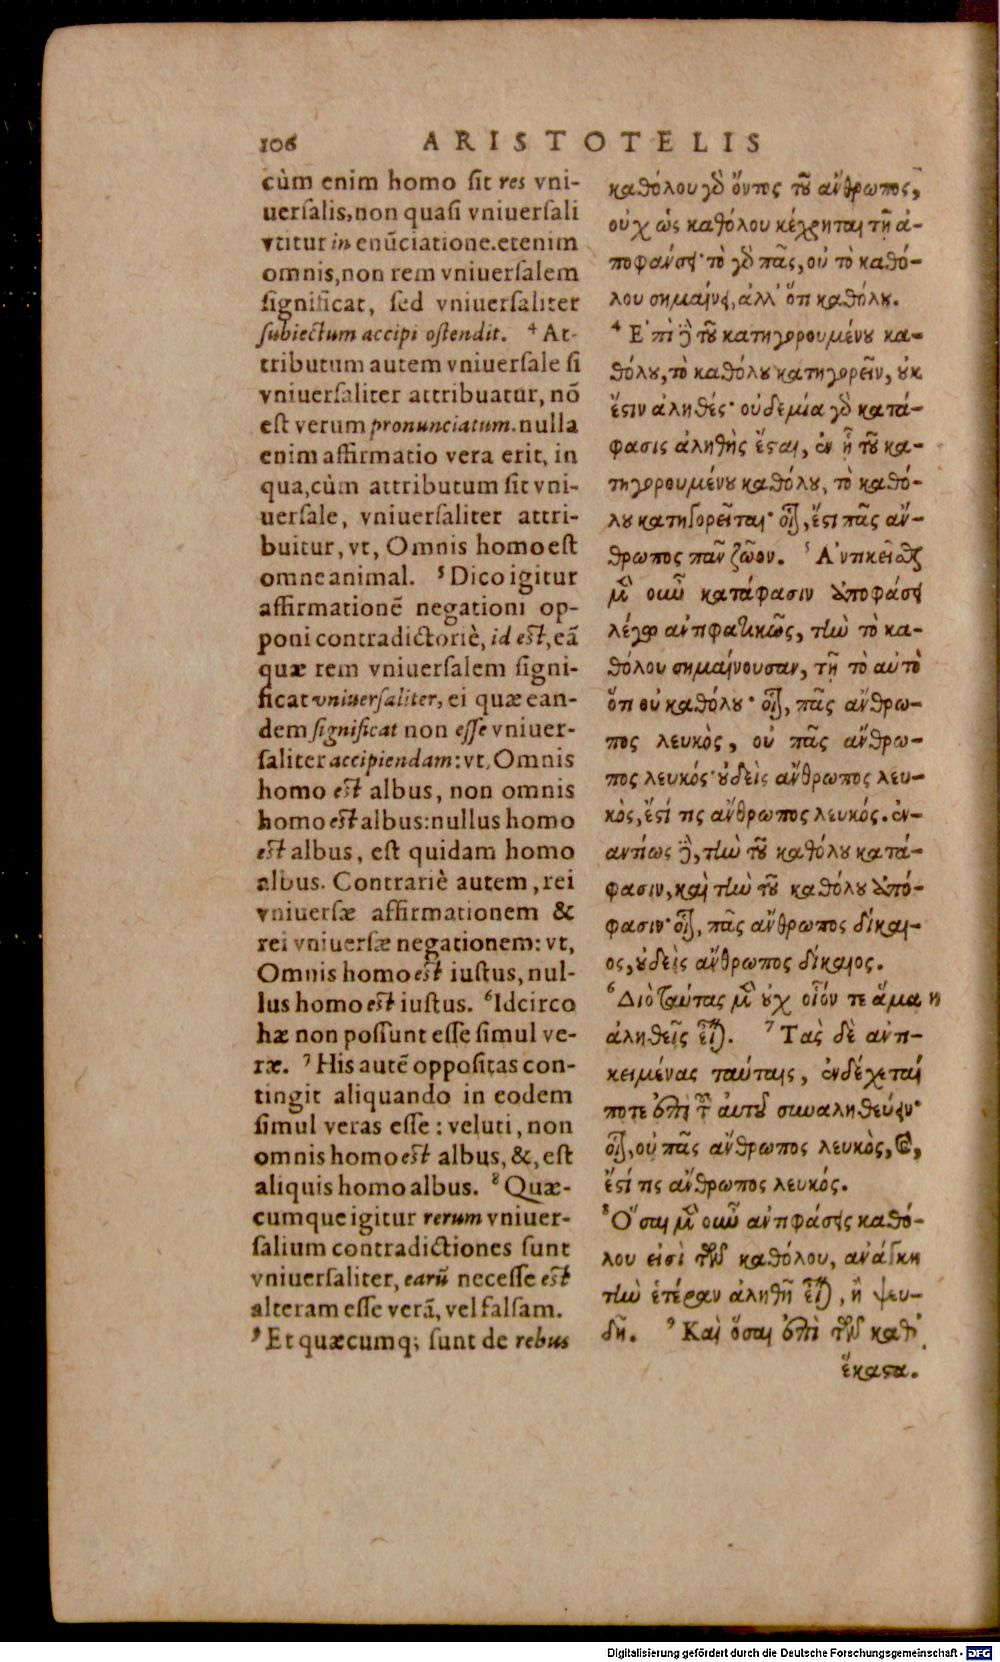 106 ARISTOTELIS
cùm enim homo sit res vni-
uersalis, non quasi vniuersali
vtitur in enūciatione. etenim
omnis, non rem vniuersalem
significat, sed vniuersaliter
subiectum accipi ostendit. 4 At-
tributum autem vniuersale si
vniuersaliter attribuatur, nō
est verum pronunciatum. nulla
enim affirmatio vera erit, in
qua, cùm attributum sit vni-
uersale, vniuersaliter attri-
buitur, vt, Omnis homo est
omne animal. 5 Dico igitur
affirmationē negationi op-
poni contradictoriè, id est, eā
quæ rem vniuersalem signi-
ficat vniuersaliter, ei quæ ean-
dem significat non esse vniuer-
saliter accipiendam: vt, Omnis
homo est albus, non omnis
homo est albus: nullus homo
est albus, est quidam homo
albus. Contrariè autem, rei
vniuersæ affirmationem &
rei vniuersæ negationem: vt,
Omnis homo est iustus, nul-
lus homo est iustus. 6 Idcirco
hæ non possunt esse simul ve-
ræ. 7 His autē oppositas con-
tingit aliquando in eodem
simul veras esse: veluti, non
omnis homo est albus, &, est
aliquis homo albus. 8 Quæ-
cumque igitur rerum vniuer-
salium contradictiones sunt
vniuersaliter, earū necesse est
alteram esse verā, vel falsam.
9 Et quæcumq; sunt de rebus
καθόλου γὰρ ὄντος τοῦ ἄνθρωπος,
οὐχ ὡς καθόλου κέχρηται τῇ ἀ-
ποφάνσει· τὸ γὰρ πᾶς, οὐ τὸ καθό-
λου σημαίνει, ἀλλ' ὅτι καθόλου.
4 Ἐπὶ δὲ τοῦ κατηγορουμένου κα-
θόλου, τὸ καθόλου κατηγορεῖν, οὐκ
ἔστιν ἀληθές· οὐδεμία γὰρ κατά-
φασις ἀληθὴς ἔσται, ἐν ᾗ τοῦ κα-
τηγορουμένου καθόλου, τὸ καθό-
λου κατηγορεῖται· οἷον, ἔστι πᾶς ἄν-
θρωπος πᾶν ζῶον. 5 Ἀντικεῖσθαι
μὲν οὖν κατάφασιν ἀποφάσει
λέγω ἀντιφατικῶς, τὴν τὸ κα-
θόλου σημαίνουσαν, τῇ τὸ αὐτὸ
ὅτι οὐ καθόλου· οἷον, πᾶς ἄνθρω-
πος λευκὸς, οὐ πᾶς ἄνθρω-
πος λευκός· οὐδεὶς ἄνθρωπος λευ-
κὸς, ἔστί τις ἄνθρωπος λευκός. ἐν-
αντίως δὲ, τὴν τοῦ καθόλου κατά-
φασιν, καὶ τὴν τοῦ καθόλου ἀπό-
φασιν· οἷον, πᾶς ἄνθρωπος δίκαι-
ος, οὐδεὶς ἄνθρωπος δίκαιος.
6 Διὸ ταύτας μὲν οὐχ οἷόν τε ἅμα
ἀληθεῖς εἶναι. 7 Τὰς δὲ ἀντι-
κειμένας ταύταις, ἐνδέχεταί
ποτε ἐπὶ τοῦ αὐτοῦ συναληθεύειν·
οἷον, οὐ πᾶς ἄνθρωπος λευκὸς, καὶ,
ἔστί τις ἄνθρωπος λευκός.
8 Ὅσαι μὲν οὖν ἀντιφάσεις καθό-
λου εἰσὶ τῶν καθόλου, ἀνάγκη
τὴν ἑτέραν ἀληθῆ εἶναι, ἢ ψευ-
δῆ. 9 Καὶ ὅσαι ἐπὶ τῶν καθ'
ἕκαστα.
Digitalisierung gefördert durch die Deutsche Forschungsgemeinschaft - DFG